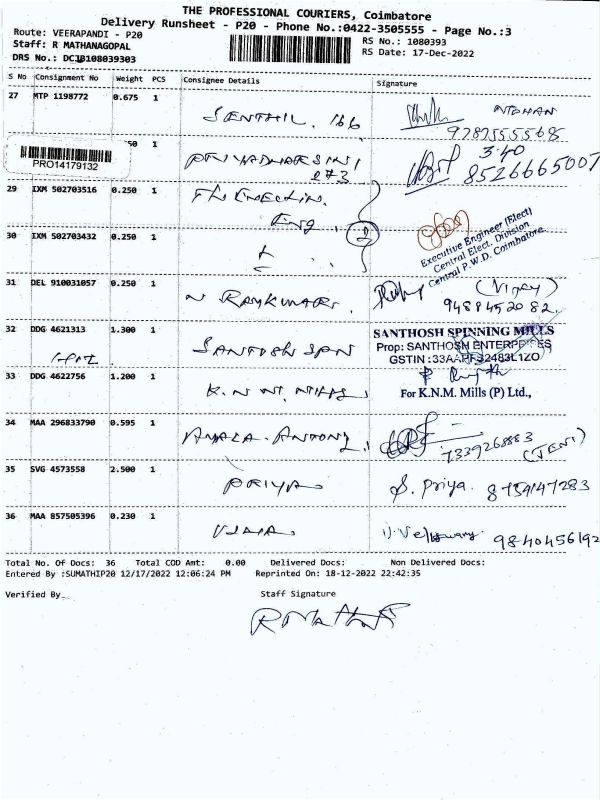 THE PROFESSIONAL COURIERS, Coimbatore
Delivery Runsheet - P20 - Phone No.:0422-3505555 - Page No.:3
Route: VEERAPANDI - P20
RS No.: 1080393
Staff: R MATHANAGOPAL
RS Date: 17-Dec-2022
DRS No.:
S No Consignment No Weight PCS Consignee Details Signature
27 MTP 1198772 0.675 1 SENTHIL. 166 MOHAN
9787555568
50 1 PRIYADHARSINI
PRO14179132
273 3.40 8526665007
29 IXM 502703516 0.250 1
Eng.
30 IXM 502703432 0.250 1
Executive Engineer (Elect)
Central Elect. Division
Central P.W.D. Coimbatore
31 DEL 910031057 0.250 1 N RAJKUMAR. (Vijay)
9488452082.
32 DDG 4621313 1.300 1 SANTOSH SPN
SANTHOSH SPINNING MILLS
Prop: SANTHOSH ENTERPRISES
33 DDG 4622756 1.200 1 K.N.M. MILLS
For K.N.M. Mills (P) Ltd.,
34 MAA 296833790 0.595 1 AMALA. ANTONY
7339268883 (JENI)
35 SVG 4573558 2.500 1 PRIYA S. Priya. 8754147283
36 MAA 857505396 0.230 1 9840456192
Total No. Of Docs: 36 Total COD Amt: 0.00 Delivered Docs: Non Delivered Docs:
Entered By :SUMATHIP20 12/17/2022 12:06:24 PM Reprinted On: 18-12-2022 22:42:35
Verified By
Staff Signature